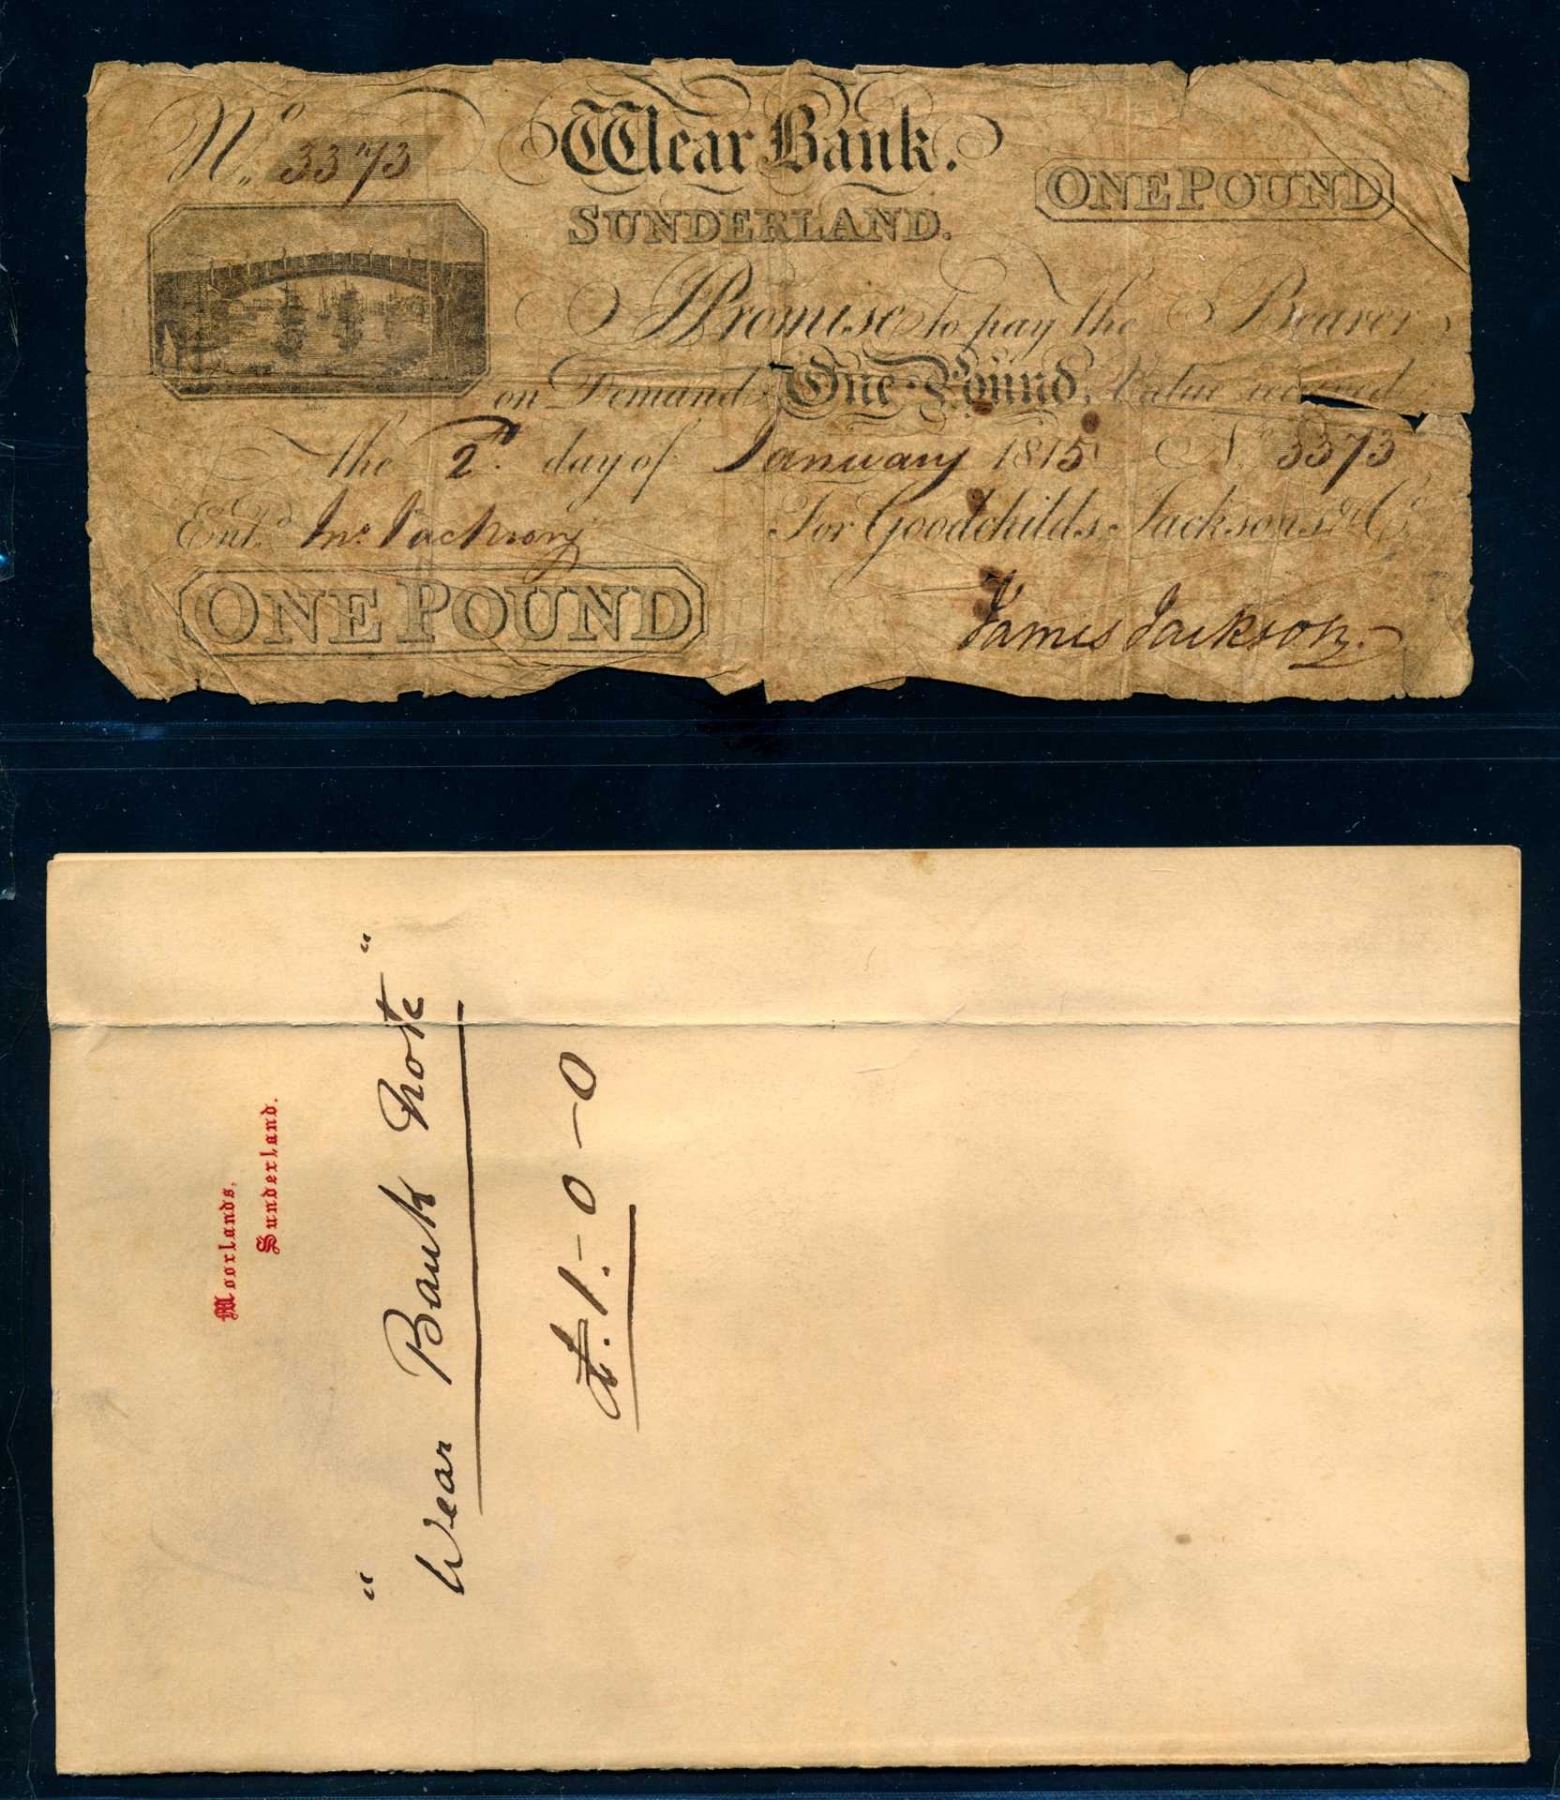 No. 3373
Wear Bank.
SUNDERLAND.
ONE POUND
I Promise to pay the Bearer
on Demand One Pound, Value received
the 2d. day of January 1815 No. 3373
Entd. Jno. Jackson For Goodchilds, Jacksons & Co.
ONE POUND
James Jackson
Moorlands,
Sunderland.
"Wear Bank Note"
£.1.-0-0